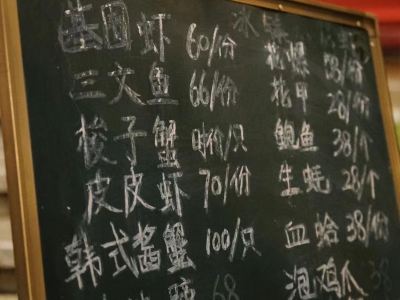 冰
基围虾 60/份
三文鱼 66/份
梭子蟹 时价/只
皮皮虾 70/份
韩式酱蟹 100/只
68
花螺 /份
花甲 28/份
鲍鱼 38/个
生蚝 28/个
血蛤 38/份
泡鸡爪